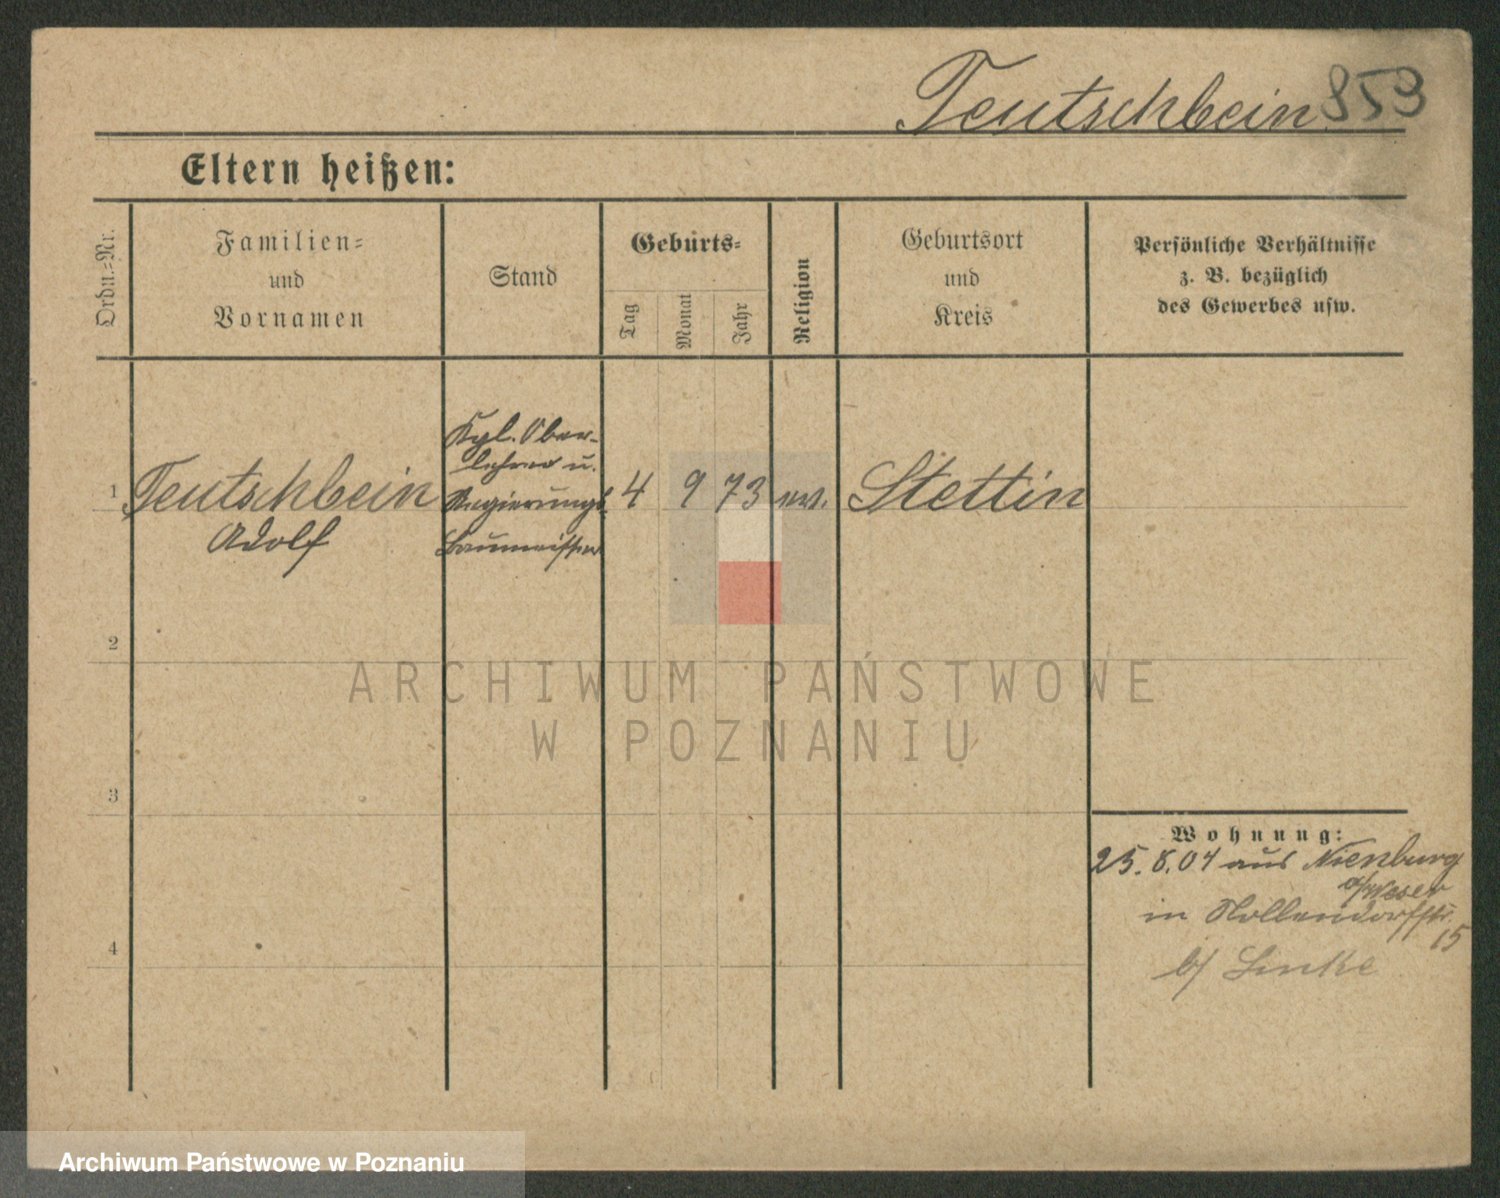 Teutschbein 853
Eltern heißen:
Ordn.=Nr.
Familien=
und
Vornamen
Stand
Geburts=
Tag
Monat
Jahr
Religion
Geburtsort
und
Kreis
Persönliche Verhältnisse
z. B. bezüglich
des Gewerbes usw.
1
Teutschbein
Adolf
Kgl. Ober-
lehrer u.
Regierungs
Baumeister
4 9 73 ev. Stettin
2
3
4
Wohnung:
25.8.04 aus Nienburg
a/Weser
in Nollendorfstr.
15
b/ Linke
ARCHIWUM PAŃSTWOWE
W POZNANIU
Archiwum Państwowe w Poznaniu